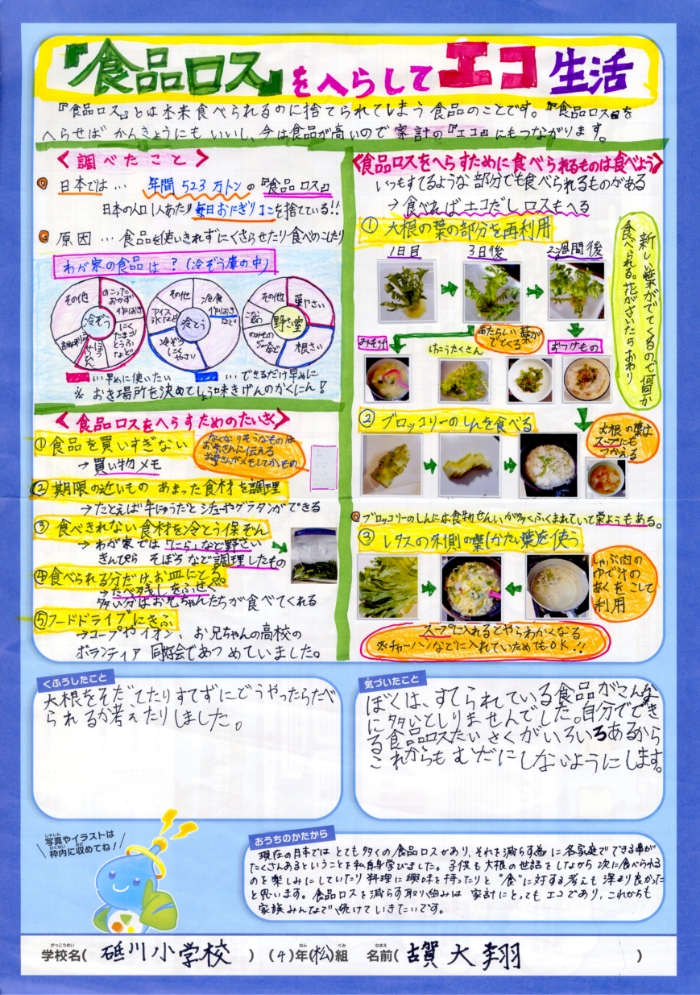 『食品ロス』をへらしてエコ生活
『食品ロス』とは本来食べられるのに捨てられてしまう食品のことです。『食品ロス』を
へらせばかんきょうにもいいし、今は食品が高いので家計の『エコ』にもつながります。
<調べたこと>
日本では… 年間523万トンの『食品ロス』
日本の人口1人あたり毎日おにぎり1こを捨てている!!
原因…食品を使いきれずにくさらせたり食べのこしたり
わが家の食品は?(冷ぞう庫の中)
その他
のこったおかず
冷ぞう
その他
冷とう
その他
葉やさい
野さい室
根さい
…早めに使いたい
…できるだけ早めに
※おき場所を決めてしょう味きげんのかくにん!
<食品ロスをへらすためのたいさく>
①食品を買いすぎない
→買い物メモ
なくなりそうなものは
お母さんに伝える
お母さんがメモしてかいもの
②期限の近いもの あまった食材を調理
→たとえば牛にゅうだとシチューやグラタンができる
③食べきれない食材を冷とう保ぞん
→わが家では「にら」など野さい
きんぴら そぼろなど調理したもの
④食べられる分だけお皿にとる
→たべのこしをふせぐ
多い分はお兄ちゃんたちが食べてくれる
⑤フードドライブにきふ
→コープやイオン、お兄ちゃんの高校の
ボランティア同好会であつめていました。
<食品ロスをへらすために食べられるものは食べよう>
いつもすてるような部分でも食べられるものがある
→食べればエコだしロスもへる
①大根の葉の部分を再利用
1日目
3日後
2週間後
新しい葉がでてくるので何回か
食べられる。花がさいたらおわり
あたらしい葉が
でてくる
おみそ汁
おつけもの
②ブロッコリーのしんを食べる
大根の葉は
スープにも
つかえる
ブロッコリーのしんには食物せんいが多くふくまれていて栄ようもある。
③レタスの外側の葉(かたい葉)を使う
しゃぶ肉の
ゆで汁の
あくをこして
利用
スープに入れるとやらわかくなる
※チャーハンなどに入れていためてもOK!!
くふうしたこと
大根をそだてたりすてずにどうやったらたべ
られるか考えたりしました。
気づいたこと
ぼくは、すてられている食品がこんな
に多いとしりませんでした。自分ででき
る食品ロスたいさくがいろいろあるから
これからもむだにしないようにします。
写真やイラストは
枠内に収めてね!
おうちのかたから
現在の日本ではとても多くの食品ロスがあり、それを減らす為に各家庭でできる事が
たくさんあるということを私自身学びました。子供も大根の世話をしながら次に食べられる
のを楽しみにしていたり料理に興味を持ったりと"食"に対する考えも深まり良かった
と思います。食品ロスを減らす取り組みは家計にとってもエコであり、これからも
家族みんなで続けていきたいです。
学校名( 砥川小学校 ) (4)年(松)組 名前( 古賀 大翔 )